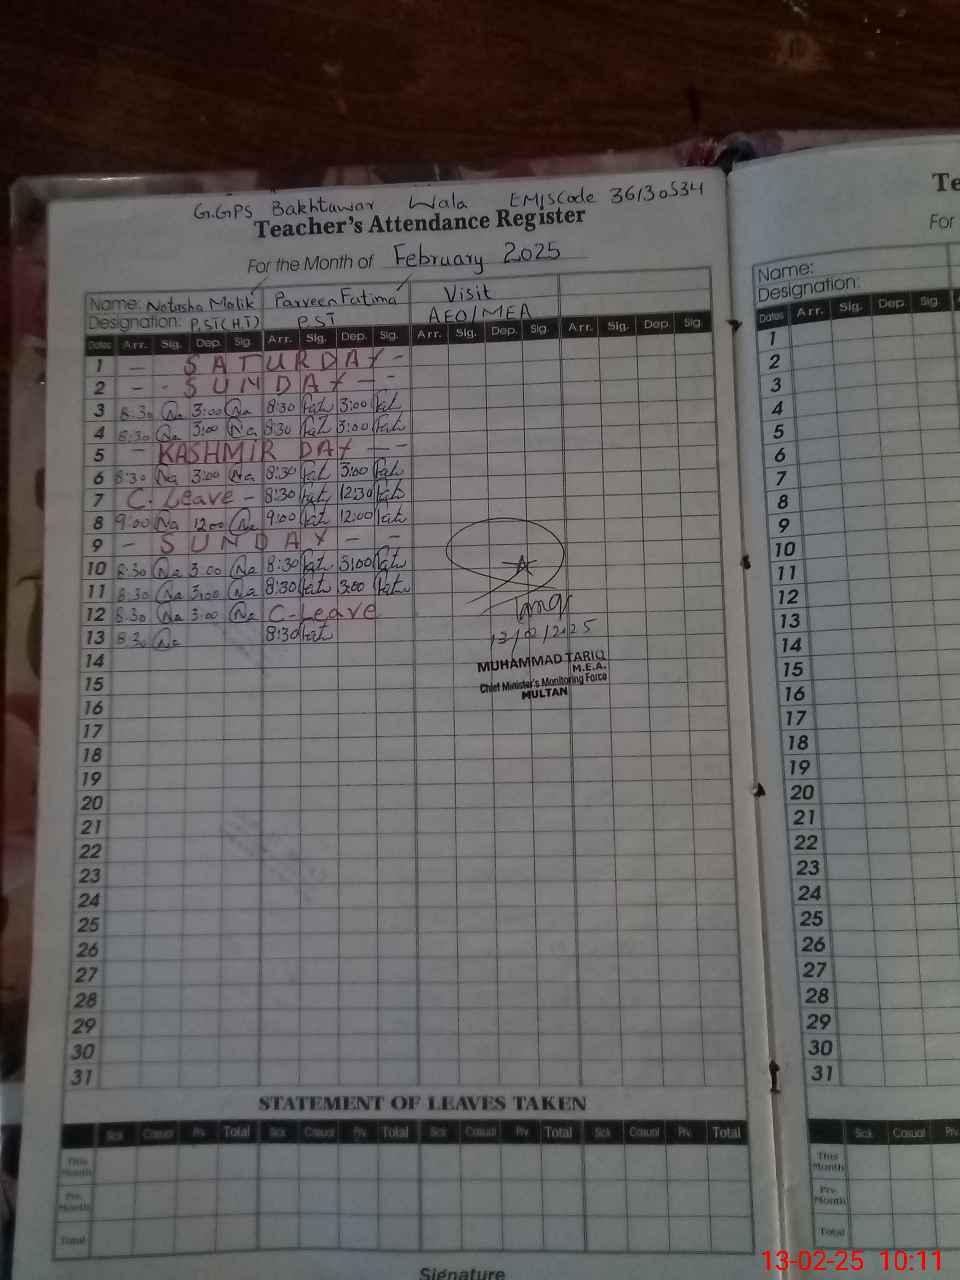 G.GPS Bakhtawar Wala EMIS Code 36130534
Teacher's Attendance Register
For the Month of February 2025
Name: Natasha Malik Parveen Fatima Visit
Designation: P.ST(H.T) PST AEO/MEA
Dates Arr. Sig. Dep. Sig. Arr. Sig. Dep. Sig. Arr. Sig. Dep. Sig. Arr. Sig. Dep. Sig.
1 - SATURDAY -
2 - - SUNDAY - -
3 8:30 Na 3:00 Na 8:30 Fat 3:00 Fat
4 8:30 Na 3:00 Na 8:30 Fat 3:00 Fat
5 - KASHMIR DAY -
6 8:30 Na 3:00 Na 8:30 Fat 3:00 Fat
7 C. Leave - 8:30 Fat 12:30 Fat
8 9:00 Na 12:00 Na 9:00 Fat 12:00 Fat
9 - SUNDAY - -
10 8:30 Na 3:00 Na 8:30 Fat 3:00 Fat
11 8:30 Na 3:00 Na 8:30 Fat 3:00 Fat
12 8:30 Na 3:00 Na C-Leave
13 8:30 Na 8:30 Fat
13/02/2025
MUHAMMAD TARIQ
M.E.A.
Chief Minister's Monitoring Force
MULTAN
14
15
16
17
18
19
20
21
22
23
24
25
26
27
28
29
30
31
STATEMENT OF LEAVES TAKEN
Sick Casual Prv. Total Sick Casual Prv. Total Sick Casual Prv. Total Sick Casual Prv. Total
This Month
Prv. Month
Total
Signature
Te
For
Name:
Designation:
Dates Arr. Sig. Dep. Sig.
1
2
3
4
5
6
7
8
9
10
11
12
13
14
15
16
17
18
19
20
21
22
23
24
25
26
27
28
29
30
31
Sick Casual Prv.
This Month
Prv. Month
Total
13-02-25 10:11